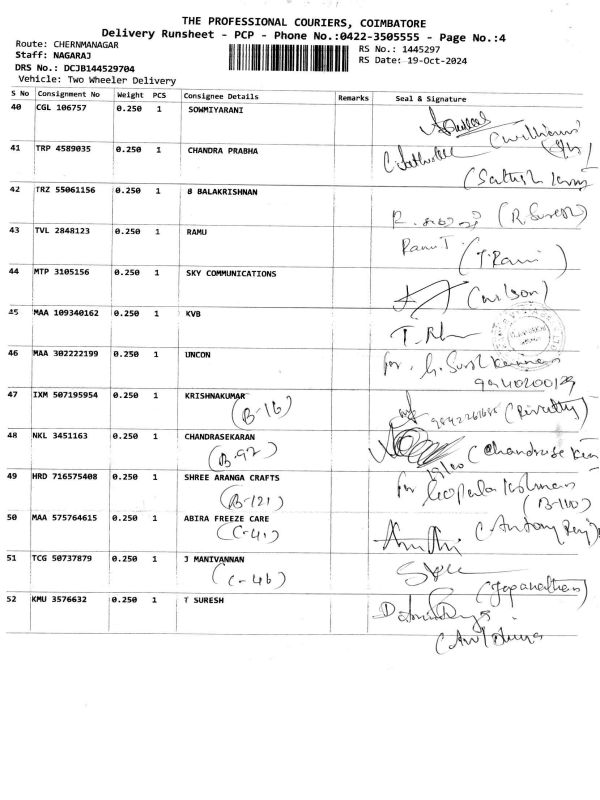 THE PROFESSIONAL COURIERS, COIMBATORE
Delivery Runsheet - PCP - Phone No.:0422-3505555 - Page No.:4
Route: CHERNMANAGAR
Staff: NAGARAJ
DRS No.: DCJB144529704
Vehicle: Two Wheeler Delivery
RS No.: 1445297
RS Date: 19-Oct-2024
S No Consignment No Weight PCS Consignee Details Remarks Seal & Signature
40 CGL 106757 0.250 1 SOWMIYARANI
(williams)
41 TRP 4589035 0.250 1 CHANDRA PRABHA
42 TRZ 55061156 0.250 1 B BALAKRISHNAN
(R Suresh)
43 TVL 2848123 0.250 1 RAMU
Ramu T
(T. Rani)
44 MTP 3105156 0.250 1 SKY COMMUNICATIONS
(wilson)
45 MAA 109340162 0.250 1 KVB
46 MAA 302222199 0.250 1 UNCON
for
47 IXM 507195954 0.250 1 KRISHNAKUMAR
(B-16)
48 NKL 3451163 0.250 1 CHANDRASEKARAN
(B-97)
19/10
49 HRD 716575408 0.250 1 SHREE ARANGA CRAFTS
for
(B-121)
(B-110)
50 MAA 575764615 0.250 1 ABIRA FREEZE CARE
(C-41)
51 TCG 50737879 0.250 1 J MANIVANNAN
(C-46)
52 KMU 3576632 0.250 1 T SURESH